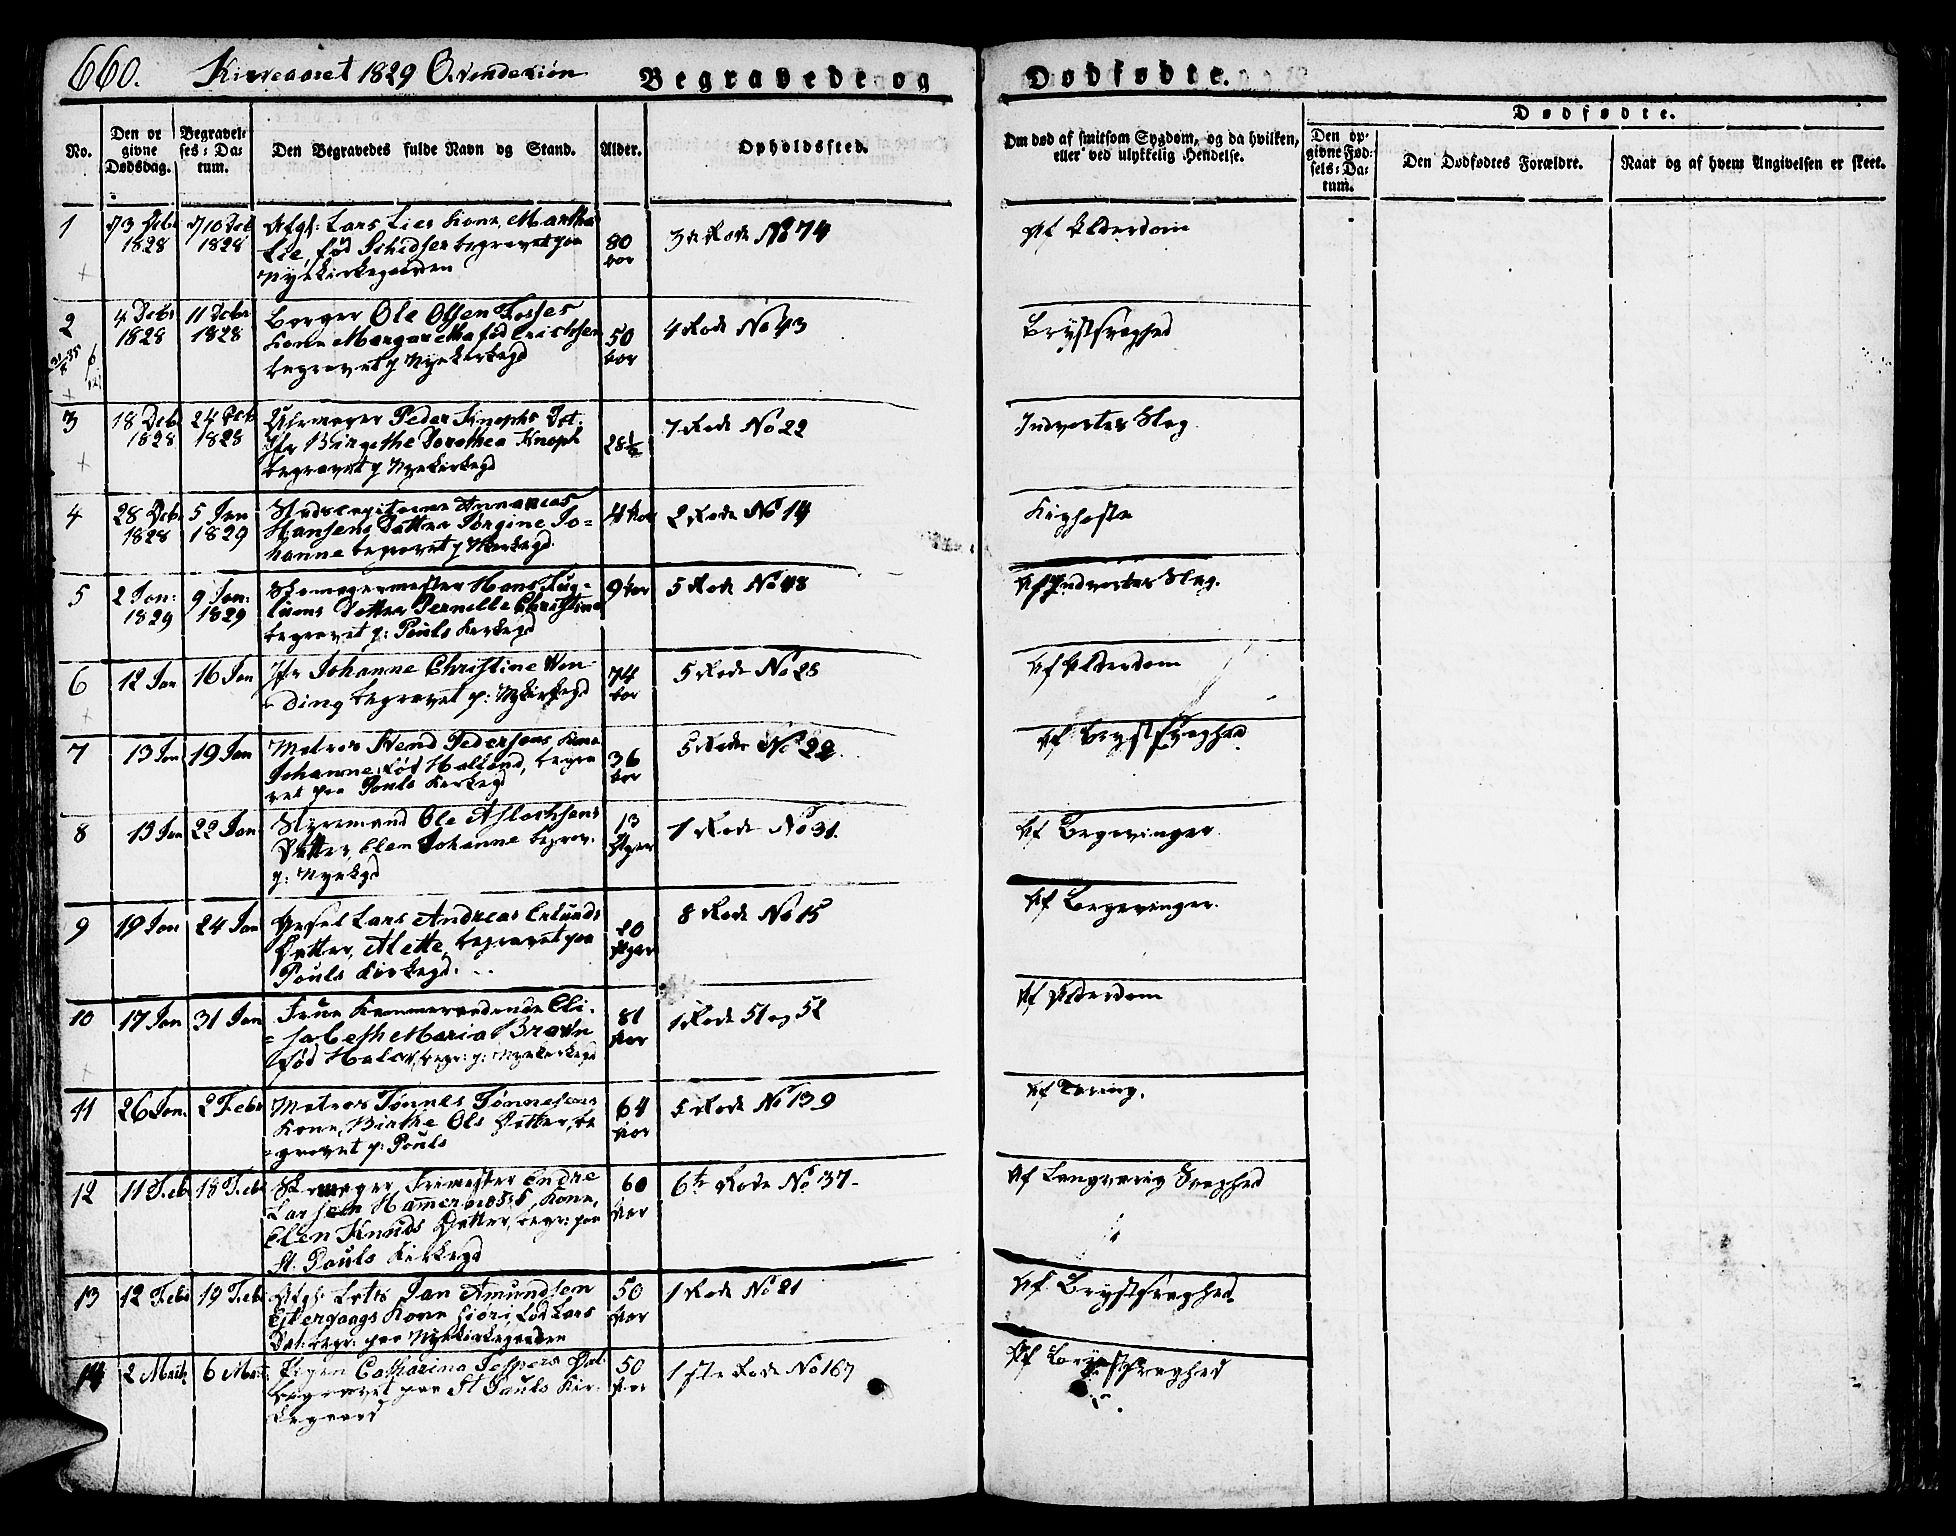 660. Kirkeaaret 1829 Qvindekiøn
Begravede og Dødfødte.
Dødfødte.
No.
Den opgivne Dødsdag.
Begravelses-Datum.
Den Begravedes fulde Navn og Stand.
Alder.
Opholdssted.
Om død af smitsom Sygdom, og da hvilken,
eller ved ulykkelig Hendelse.
Den opgivne Fødsels-Datum.
Den Dødfødtes Forældre.
Naar og af hvem Angivelsen er skeet.
1
3 Decbr 1828
10 Decb 1828
Afgl: Lars Lies Kone, Martha
Lie, fød begravet paa
Nyekirkegaarden
80 Aar
3de Rode No 74
Af Alderdom
2
4 Decbr 1828
11 Decbr 1828
Borger Ole Olsen Fosses
Kone Margaretha fød Erichsen
begravet p Nyekirkegd
50 Aar
4 Rode No 43
Brystsvaghed
3
18 Decbr 1828
24 Decb 1828
Uhrmager Peder Knophs Dat:
Jfr Birgethe Dorothea Knoph
begravet p Nyekirkegd
28½
7 Rode No 22
Indvortes Slag
4
28 Decbr 1828
5 Jan 1829
Hansens Datter Jørgine Jo=
hanne begravet p Nkirkegd
4 Aar
2 Rode No 14
Kighoste
5
2 Jan: 1829
9 Jan: 1829
Skomagermester Hans
Datter Pernille Christine
begravet p: Pouls Kirkegd
9 Aar
5 Rode No 48
Af Indvortes Slag.
6
12 Jan
16 Jan
Jfr Johanne Christine Wen-
ding begravet p: Nykirkegd
74 Aar
5 Rode No 28
Af Alderdom
7
13 Jan
19 Jan
Matros Svend Pedersens, Kone
Johanne, fød Halland, begra
vet paa Pouls Kirkegd
36 Aar
5 Rode No 22.
Af Brystsvaghed
8
13 Jan
22 Jan
Styrmand Ole Aslachsens
Datter, Elen Johanne begrav.
p: Nyekgd
13 Uger
1 Rode No 31.
Af Begevinger.
9
19 Jan
24 Jan
Lars Andreas Erlunds
Datter, Alette, begravet paa
Pouls Kirkegd.
20 Uger
8 Rode No 15
Af Begevinger.
10
17 Jan
31 Jan
Frue Kammerraadinde Eli=
sabeth Maria Brown
fød Hals, begr: p: Nyekirkegd
81 Aar
1 Rode 51 og 52
Af Alderdom
11
26 Jan.
2 Febr
Matros Tønnes Tønnesens
Kone, Birthe Ols Datter, be
gravet p: Pouls
64 Aar
5 Rode No 139
Af Tæring.
12
11 Febr
18 Febr
Skomager Frimester Endre
Larsen Hammersess, Kone,
Elen Knuds Datter, begr: paa
St. Pauls Kirkegd
60 Aar
6te Rode No 37-
Af Langvarig Svaghed
13
12 Febr
19 Febr
Afgl: Jan Amundsen
Kone Siøri, fød Lars
Dat: begr: paa Nyekirkegaarden
50 Aar
1 Rode No 21
Af Brystsvaghed.
14
2 Marts
6 Mart
Pigen Catharina Jespers Dat.
begravet paa St Pauls Kir-
kegaard
50 Aar
1ste Rode No 167
Af Brystsvaghed